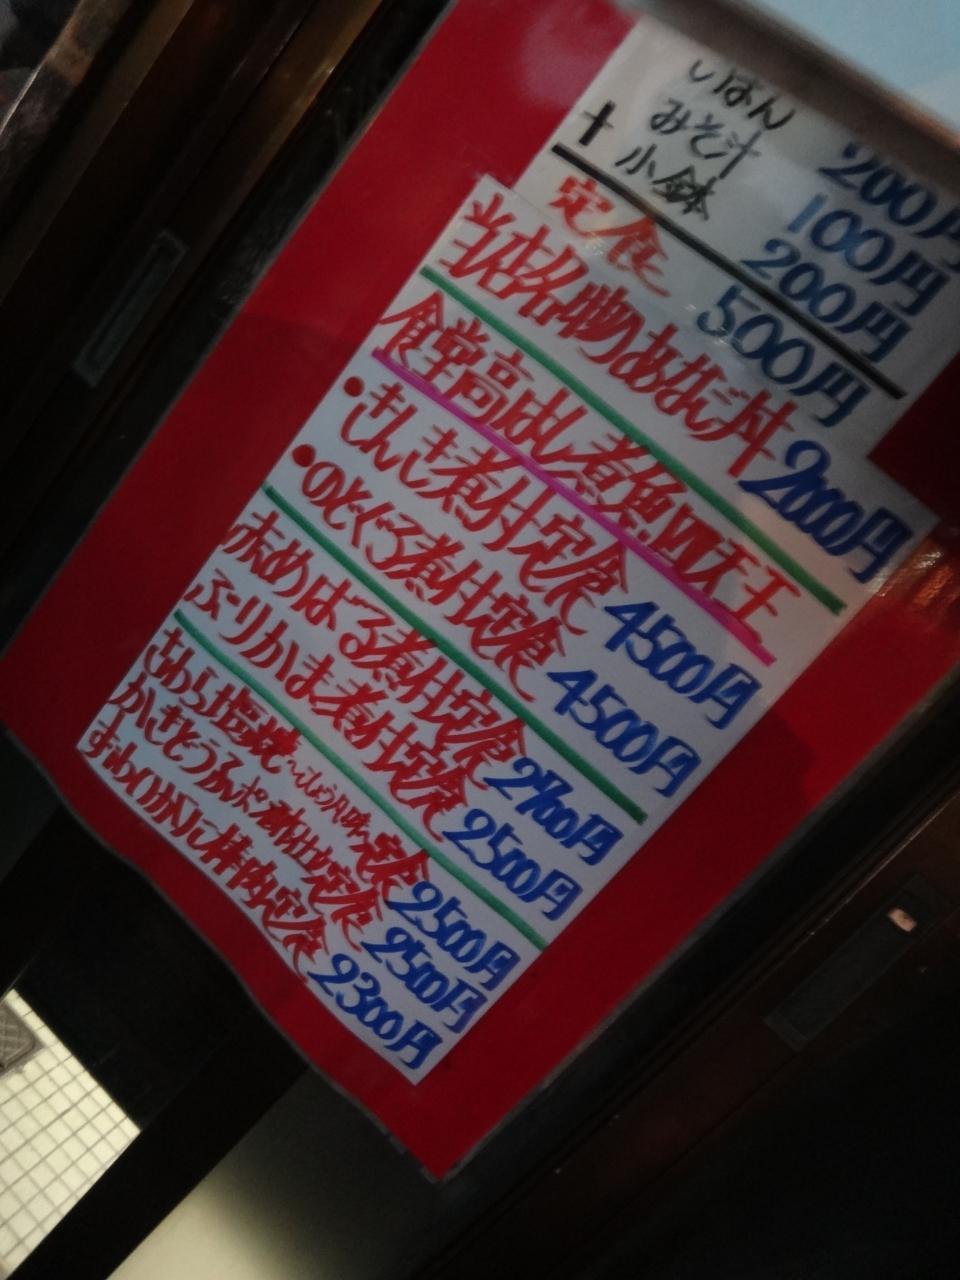 ごはん 200円
みそ汁 100円
+ 小鉢 200円
定食 500円
当店名物あなご丼 2000円
食堂高はし煮魚四天王
・きんき煮付定食 4500円
・のどぐろ煮付定食 4500円
赤めばる煮付定食 2700円
ぶりかま煮付定食 2500円
さわら塩焼 定食 2500円
かきとうふポン酢仕立定食 2500円
ずわいがに棒肉定食 2300円